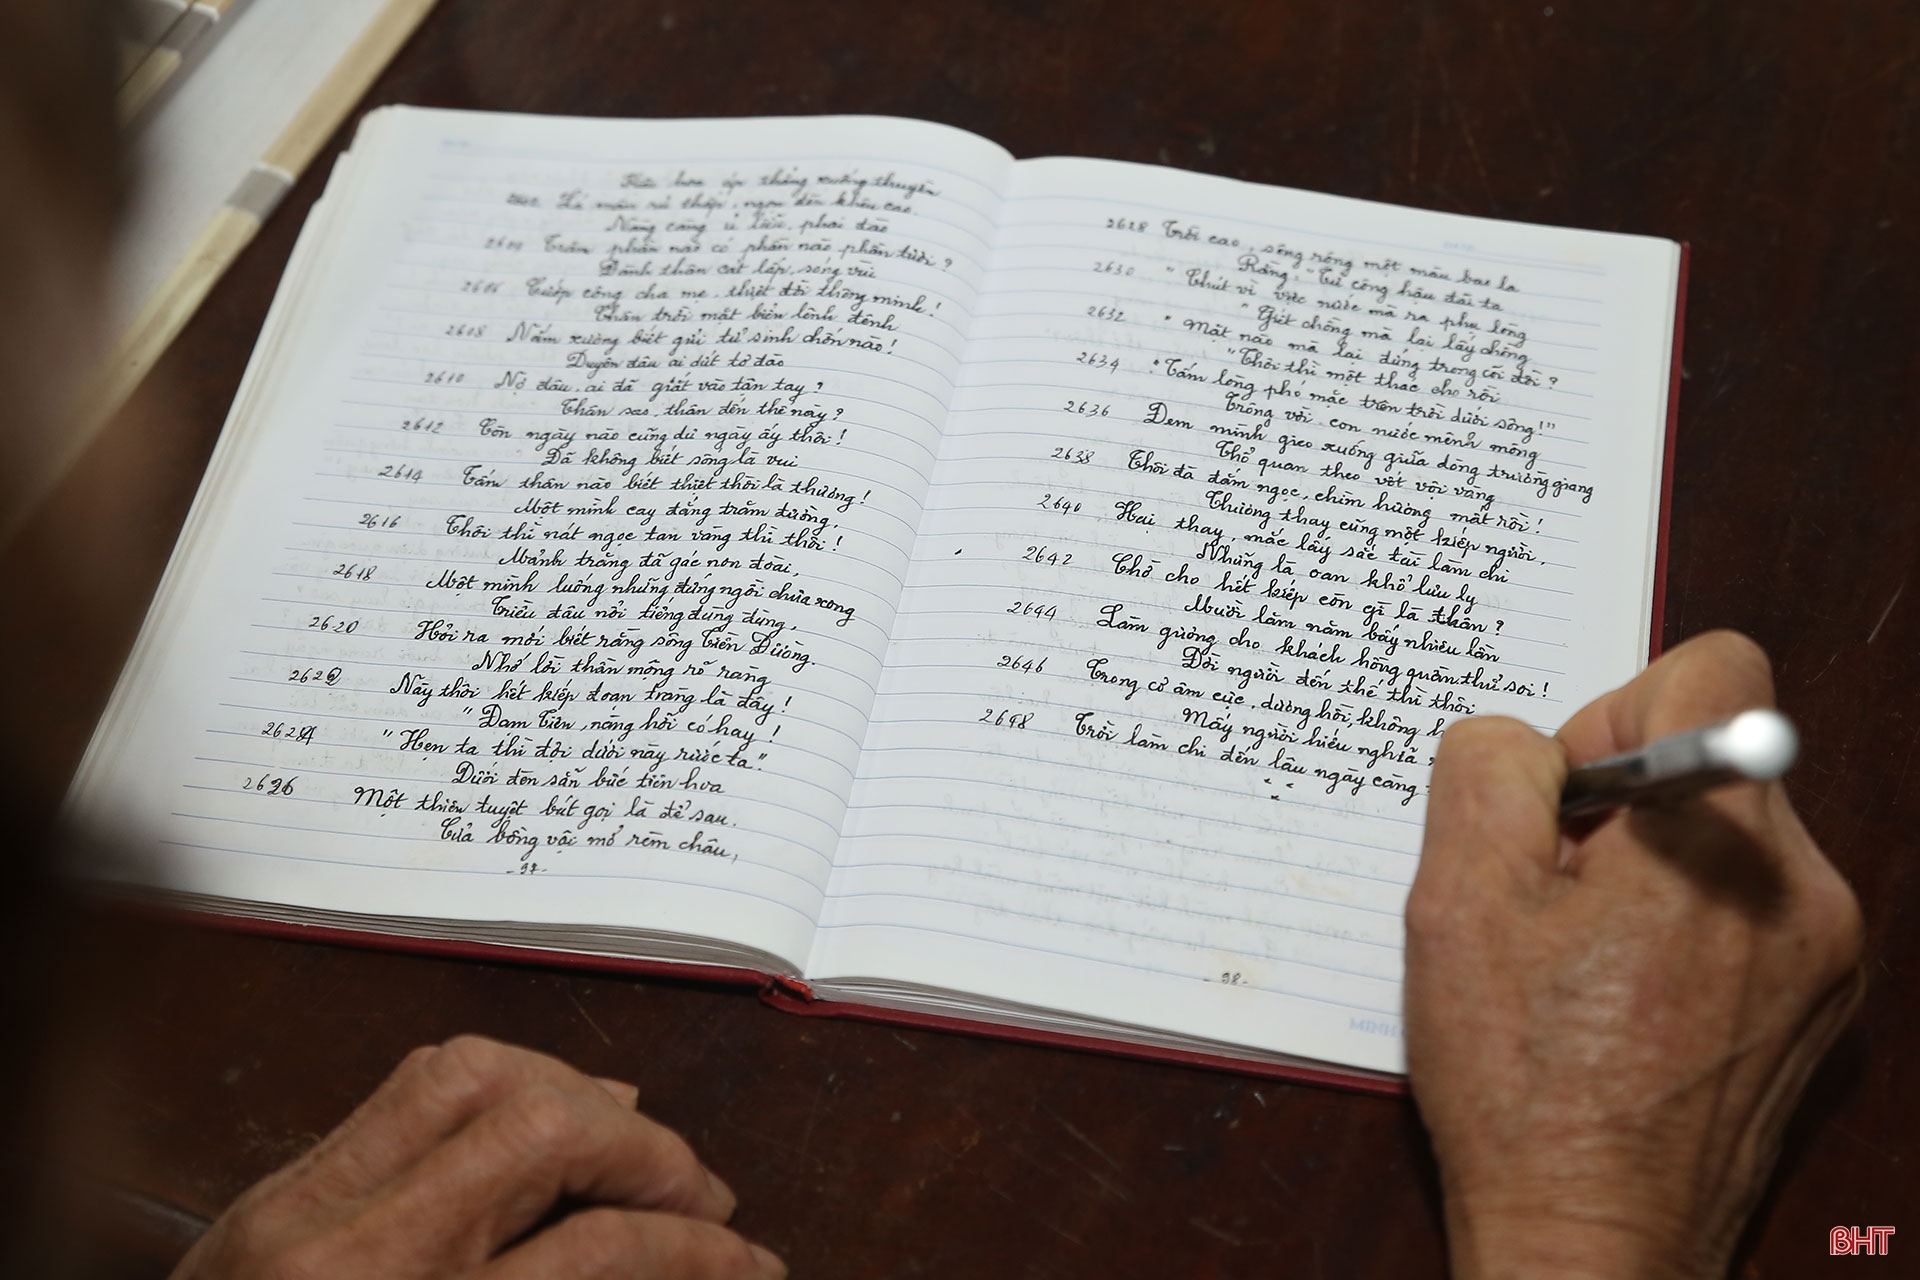 Kiệu hoa áp thẳng xuống thuyền
2602 Lá màn rủ thấp, ngọn đèn khêu cao.
Nàng càng ủ liễu, phai đào
2604 Trăm phần nào có phần nào phần tươi?
Đành thân cát lấp, sóng vùi
2606 Cướp công cha mẹ, thiệt đời thông minh!
Chân trời mặt biển lênh đênh
2608 Nắm xương biết gửi tử sinh chốn nào!
Duyên đâu ai dứt tơ đào
2610 Nợ đâu, ai đã giắt vào tận tay?
Thân sao, thân đến thế này?
2612 Còn ngày nào cũng dư ngày ấy thôi!
Đã không biết sống là vui
2614 Tấm thân nào biết thiệt thòi là thương!
Một mình cay đắng trăm đường,
2616 Thôi thì nát ngọc tan vàng thì thôi!
Mảnh trăng đã gác non đoài,
2618 Một mình luống những đứng ngồi chưa xong
Triều đâu nổi tiếng đùng đùng,
2620 Hỏi ra mới biết rằng sông Tiền Đường.
Nhớ lời thần mộng rõ ràng
2622 Này thôi hết kiếp đoạn trường là đây!
"Đạm Tiên, nàng hỡi có hay!
2624 "Hẹn ta thì đợi dưới này rước ta."
Dưới đèn sẵn bức tiên hoa
2626 Một thiên tuyệt bút gọi là để sau.
Cửa bồng vội mở rèm châu,
-97-
2628 Trời cao, sông rộng một màu bao la
Rằng: "Từ công hậu đãi ta
2630 "Chút vì việc nước mà ra phụ lòng
"Giết chồng mà lại lấy chồng
2632 "Mặt nào mà lại đứng trong cõi đời?
"Thôi thì một thác cho rồi
2634 "Tấm lòng phó mặc trên trời dưới sông!"
Trông vời, con nước mênh mông
2636 Đem mình gieo xuống giữa dòng trường giang
Thổ quan theo vớt vội vàng
2638 Thôi đà đắm ngọc, chìm hương mất rồi!
Thương thay cũng một kiếp người,
2640 Hại thay, mắc lấy sắc tài làm chi
Những là oan khổ lưu ly
2642 Chờ cho hết kiếp còn gì là thân?
Mười lăm năm bấy nhiêu lần
2644 Làm gương cho khách hồng quần thử soi!
Đời người đến thế thì thôi
2646 Trong cơ âm cực, dương hồi, không
Mấy người hiếu nghĩa
2648 Trời làm chi đến lâu ngày càng
-98-
BHT